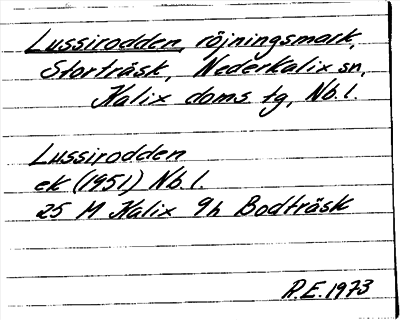 Lussirodden, röjningsmark,
Storträsk, Nederkalix sn,
Kalix doms tg, Nb.l.
Lussirodden
ek (1951) Nb.l.
25 M Kalix 9h Bodträsk
R.E. 1973